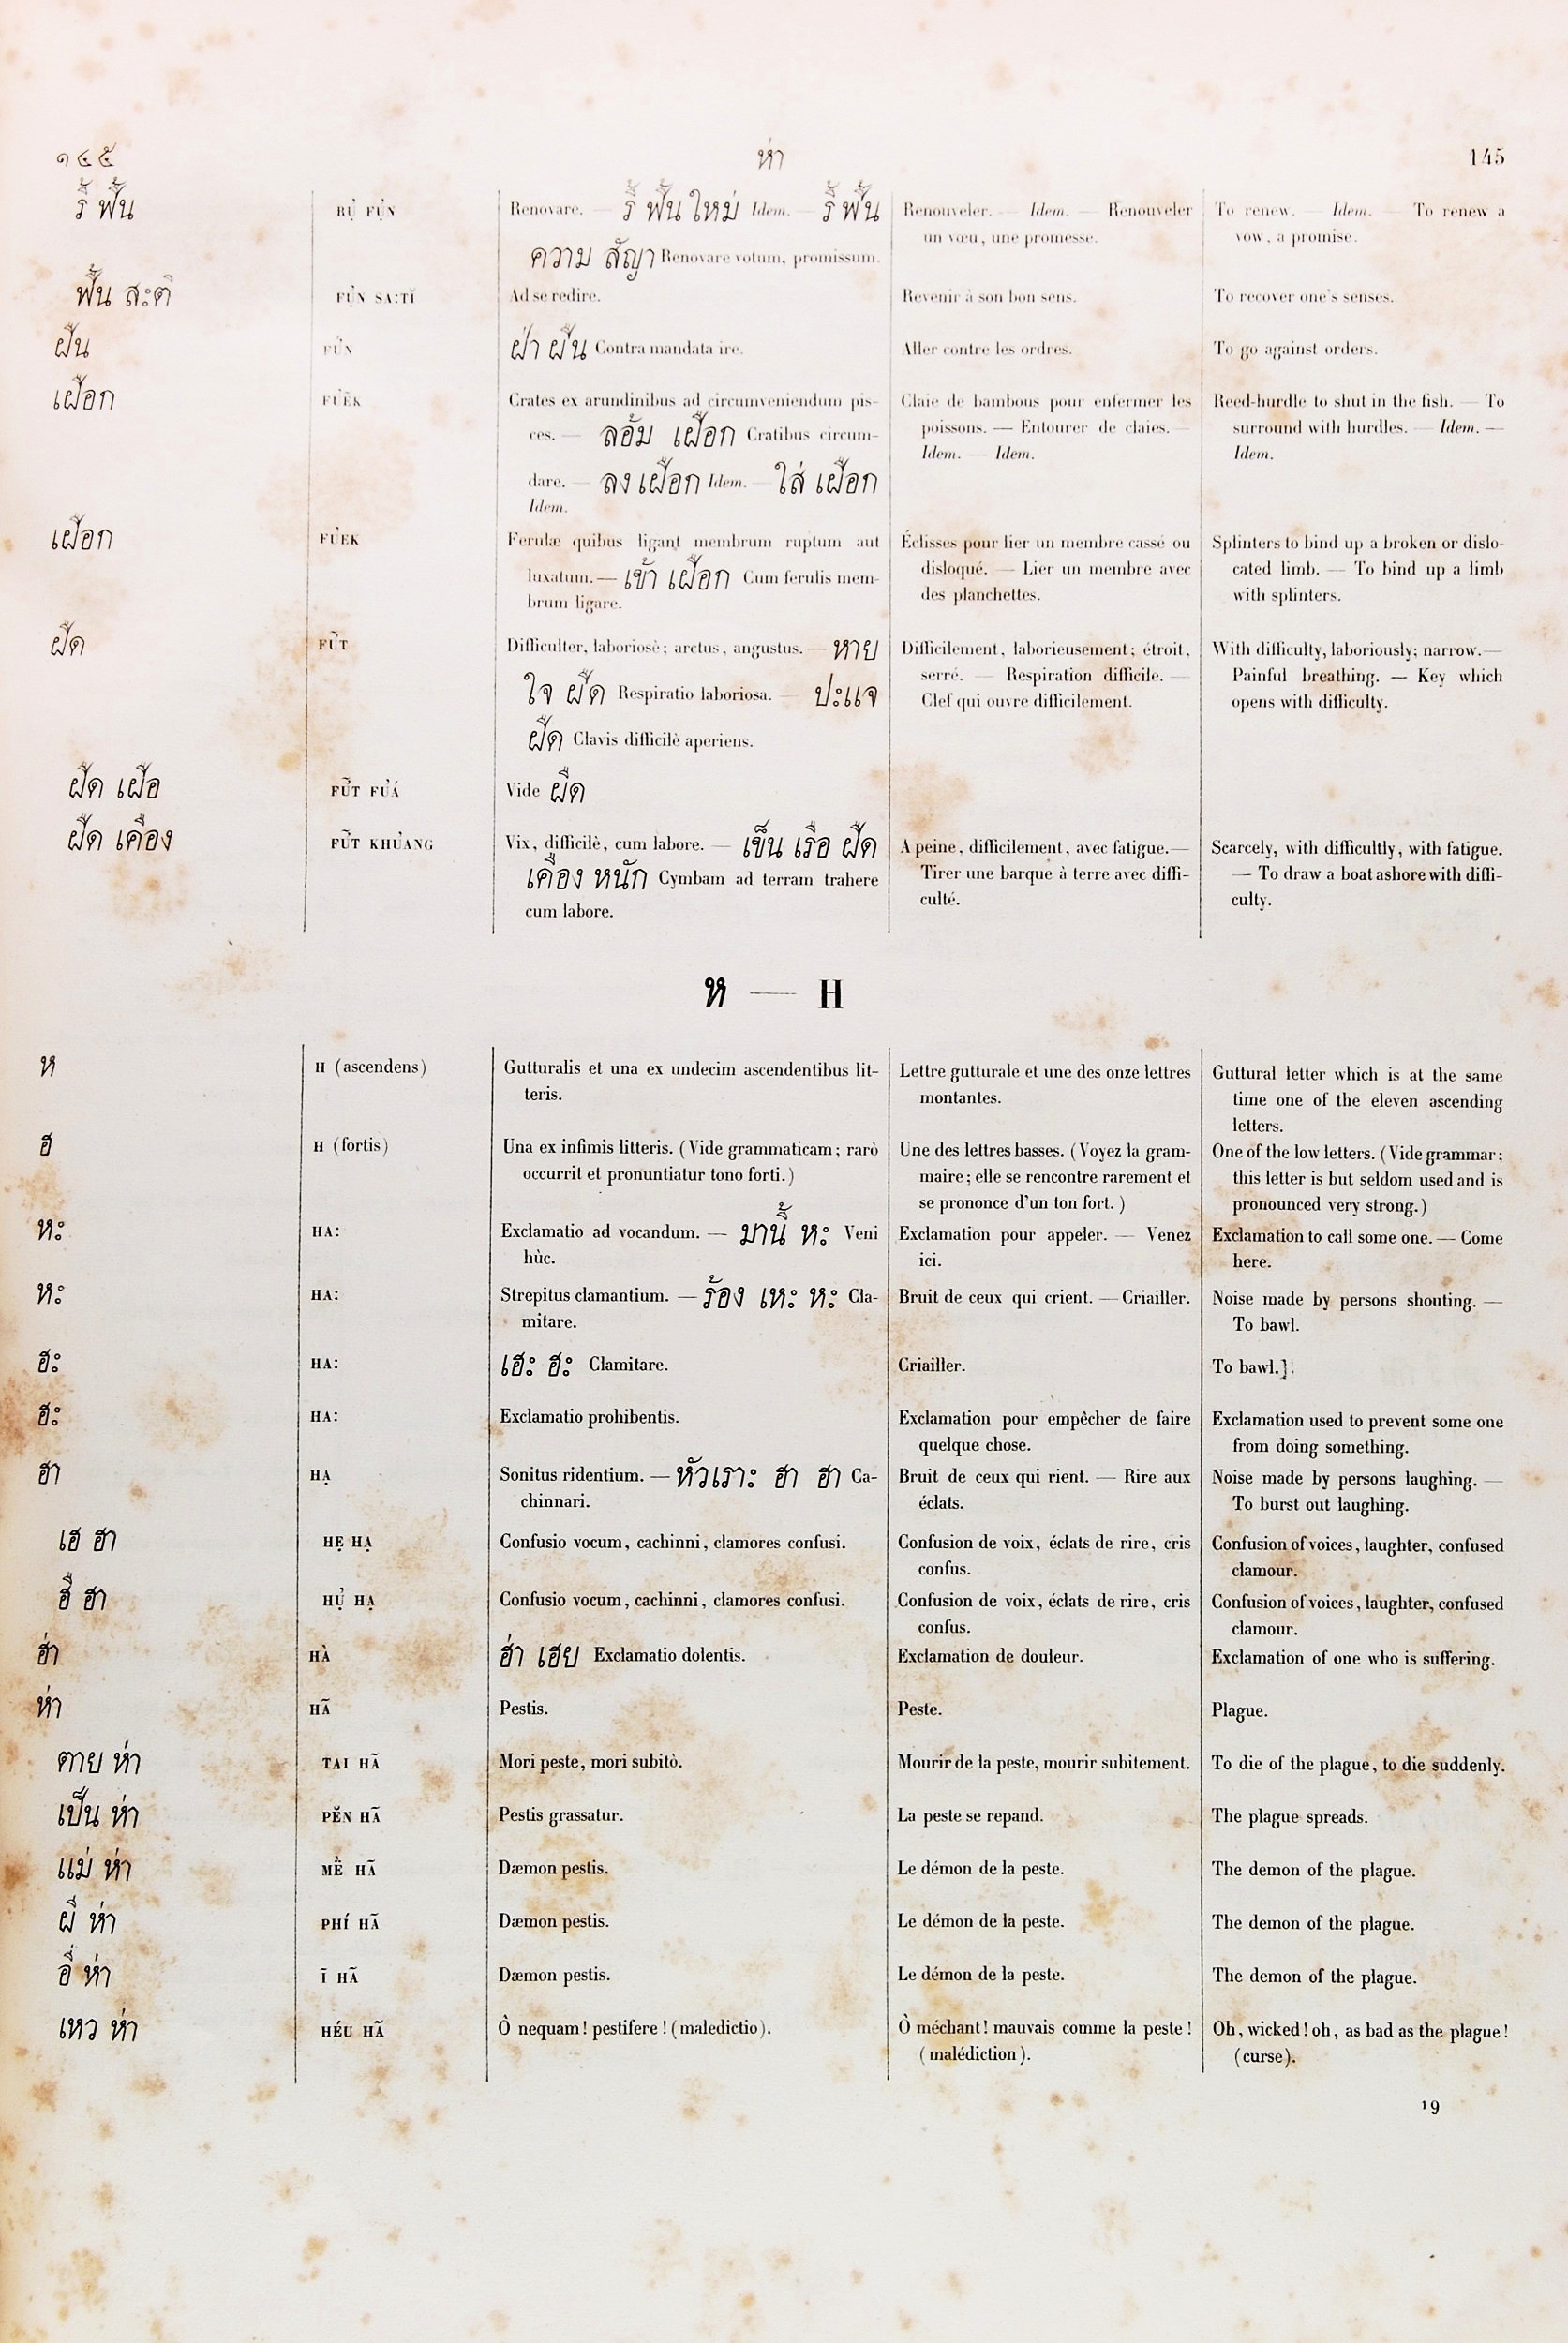 ๑๔๕ ห่า 145
รื้ ฟื้น RỤ̉ FỤ̉N Renovare. — รื้ ฟื้น ใหม่ Idem. — รื้ ฟื้น Renouveler. — Idem. — Renouveler To renew. — Idem. — To renew a
ความ สัญา Renovare votum, promissum. un vœu, une promesse. vow, a promise.
ฟื้น สะติ FỤ̉N SA:TĬ Ad se redire. Revenir à son bon sens. To recover one's senses.
ฝืน ฝ่า ฝืน Contra mandata ire. Aller contre les ordres. To go against orders.
เฝือก Crates ex arundinibus ad circumveniendum pis- Claie de bambous pour enfermer les Reed-hurdle to shut in the fish. — To
ces. — ลอ้ม เฝือก Cratibus circum- poissons. — Entourer de claies. — surround with hurdles. — Idem. —
dare. — ลง เฝือก Idem. — ใส่ เฝือก Idem. — Idem. Idem.
Idem.
เฝือก FU̓EK Ferulæ quibus ligant membrum ruptum aut Éclisses pour lier un membre cassé ou Splinters to bind up a broken or dislo-
luxatum. — เข้า เฝือก Cum ferulis mem- disloqué. — Lier un membre avec cated limb. — To bind up a limb
brum ligare. des planchettes. with splinters.
ฝืด Difficulter, laboriosè; arctus, angustus. — หาย Difficilement, laborieusement; étroit, With difficulty, laboriously; narrow. —
ใจ ฝืด Respiratio laboriosa. — ปะแจ serré. — Respiration difficile. — Painful breathing. — Key which
ฝืด Clavis difficilè aperiens. Clef qui ouvre difficilement. opens with difficulty.
ฝืด เฝือ Vide ฝืด
ฝืด เคือง Vix, difficilè, cum labore. — เข็น เรือ ฝืด A peine, difficilement, avec fatigue. — Scarcely, with difficultly, with fatigue.
เคือง หนัก Cymbam ad terram trahere Tirer une barque à terre avec diffi- — To draw a boat ashore with diffi-
cum labore. culté. culty.
ห — H
ห H (ascendens) Gutturalis et una ex undecim ascendentibus lit- Lettre gutturale et une des onze lettres Guttural letter which is at the same
teris. montantes. time one of the eleven ascending
letters.
ฮ H (fortis) Una ex infimis litteris. (Vide grammaticam; rarò Une des lettres basses. (Voyez la gram- One of the low letters. (Vide grammar;
occurrit et pronuntiatur tono forti.) maire; elle se rencontre rarement et this letter is but seldom used and is
se prononce d'un ton fort. ) pronounced very strong.)
หะ HA: Exclamatio ad vocandum. — มานี้ หะ Veni Exclamation pour appeler. — Venez Exclamation to call some one. — Come
hùc. ici. here.
หะ HA: Strepitus clamantium. — ร้อง เหะ หะ Cla- Bruit de ceux qui crient. — Criailler. Noise made by persons shouting. —
mitare. To bawl.
ฮะ HA: เฮะ ฮะ Clamitare. Criailler. To bawl.].
ฮะ HA: Exclamatio prohibentis. Exclamation pour empêcher de faire Exclamation used to prevent some one
quelque chose. from doing something.
ฮา HẠ Sonitus ridentium. — หัวเราะ ฮา ฮา Ca- Bruit de ceux qui rient. — Rire aux Noise made by persons laughing. —
chinnari. éclats. To burst out laughing.
เฮ ฮา HẸ HẠ Confusio vocum, cachinni, clamores confusi. Confusion de voix, éclats de rire, cris Confusion of voices, laughter, confused
confus. clamour.
ฮื ฮา HỤ̉ HẠ Confusio vocum, cachinni, clamores confusi. Confusion de voix, éclats de rire, cris Confusion of voices, laughter, confused
confus. clamour.
ฮ่า HÀ ฮ่า เฮย Exclamatio dolentis. Exclamation de douleur. Exclamation of one who is suffering.
ห่า HÃ Pestis. Peste. Plague.
ตาย ห่า TAI HÃ Mori peste, mori subitò. Mourir de la peste, mourir subitement. To die of the plague, to die suddenly.
เป็น ห่า PĔN HÃ Pestis grassatur. La peste se repand. The plague spreads.
แม่ ห่า MÈ HÃ Dæmon pestis. Le démon de la peste. The demon of the plague.
ผี ห่า PHÍ HÃ Dæmon pestis. Le démon de la peste. The demon of the plague.
อี่ ห่า Ĩ HÃ Dæmon pestis. Le démon de la peste. The demon of the plague.
เหว ห่า HÉU HÃ Ò nequam! pestifere! (maledictio). Ò méchant! mauvais comme la peste! Oh, wicked! oh, as bad as the plague!
(malédiction). (curse).
19